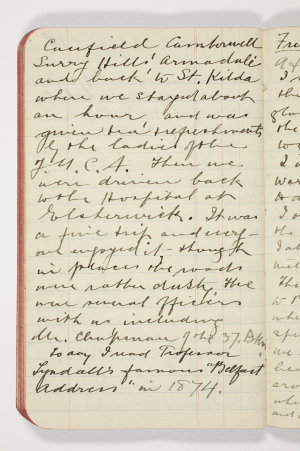 Caulfield Camberwell
Surry Hills' Armadale
and back to St. Kilda
where we stayed about
an hour and was
given tea & refreshments
by the ladies of the
Y.M.C.A. Then we
were driven back
to the Hospital at
Elsternwick. It was
a fine trip and every-
one enjoyed it - though
in places the roads
were rather dusty. There
were several officers
with us including
Mr. Chapman of the 37. Btn.
Today I read Professor
Tyndall's famous "Belfast
Address" in 1874.